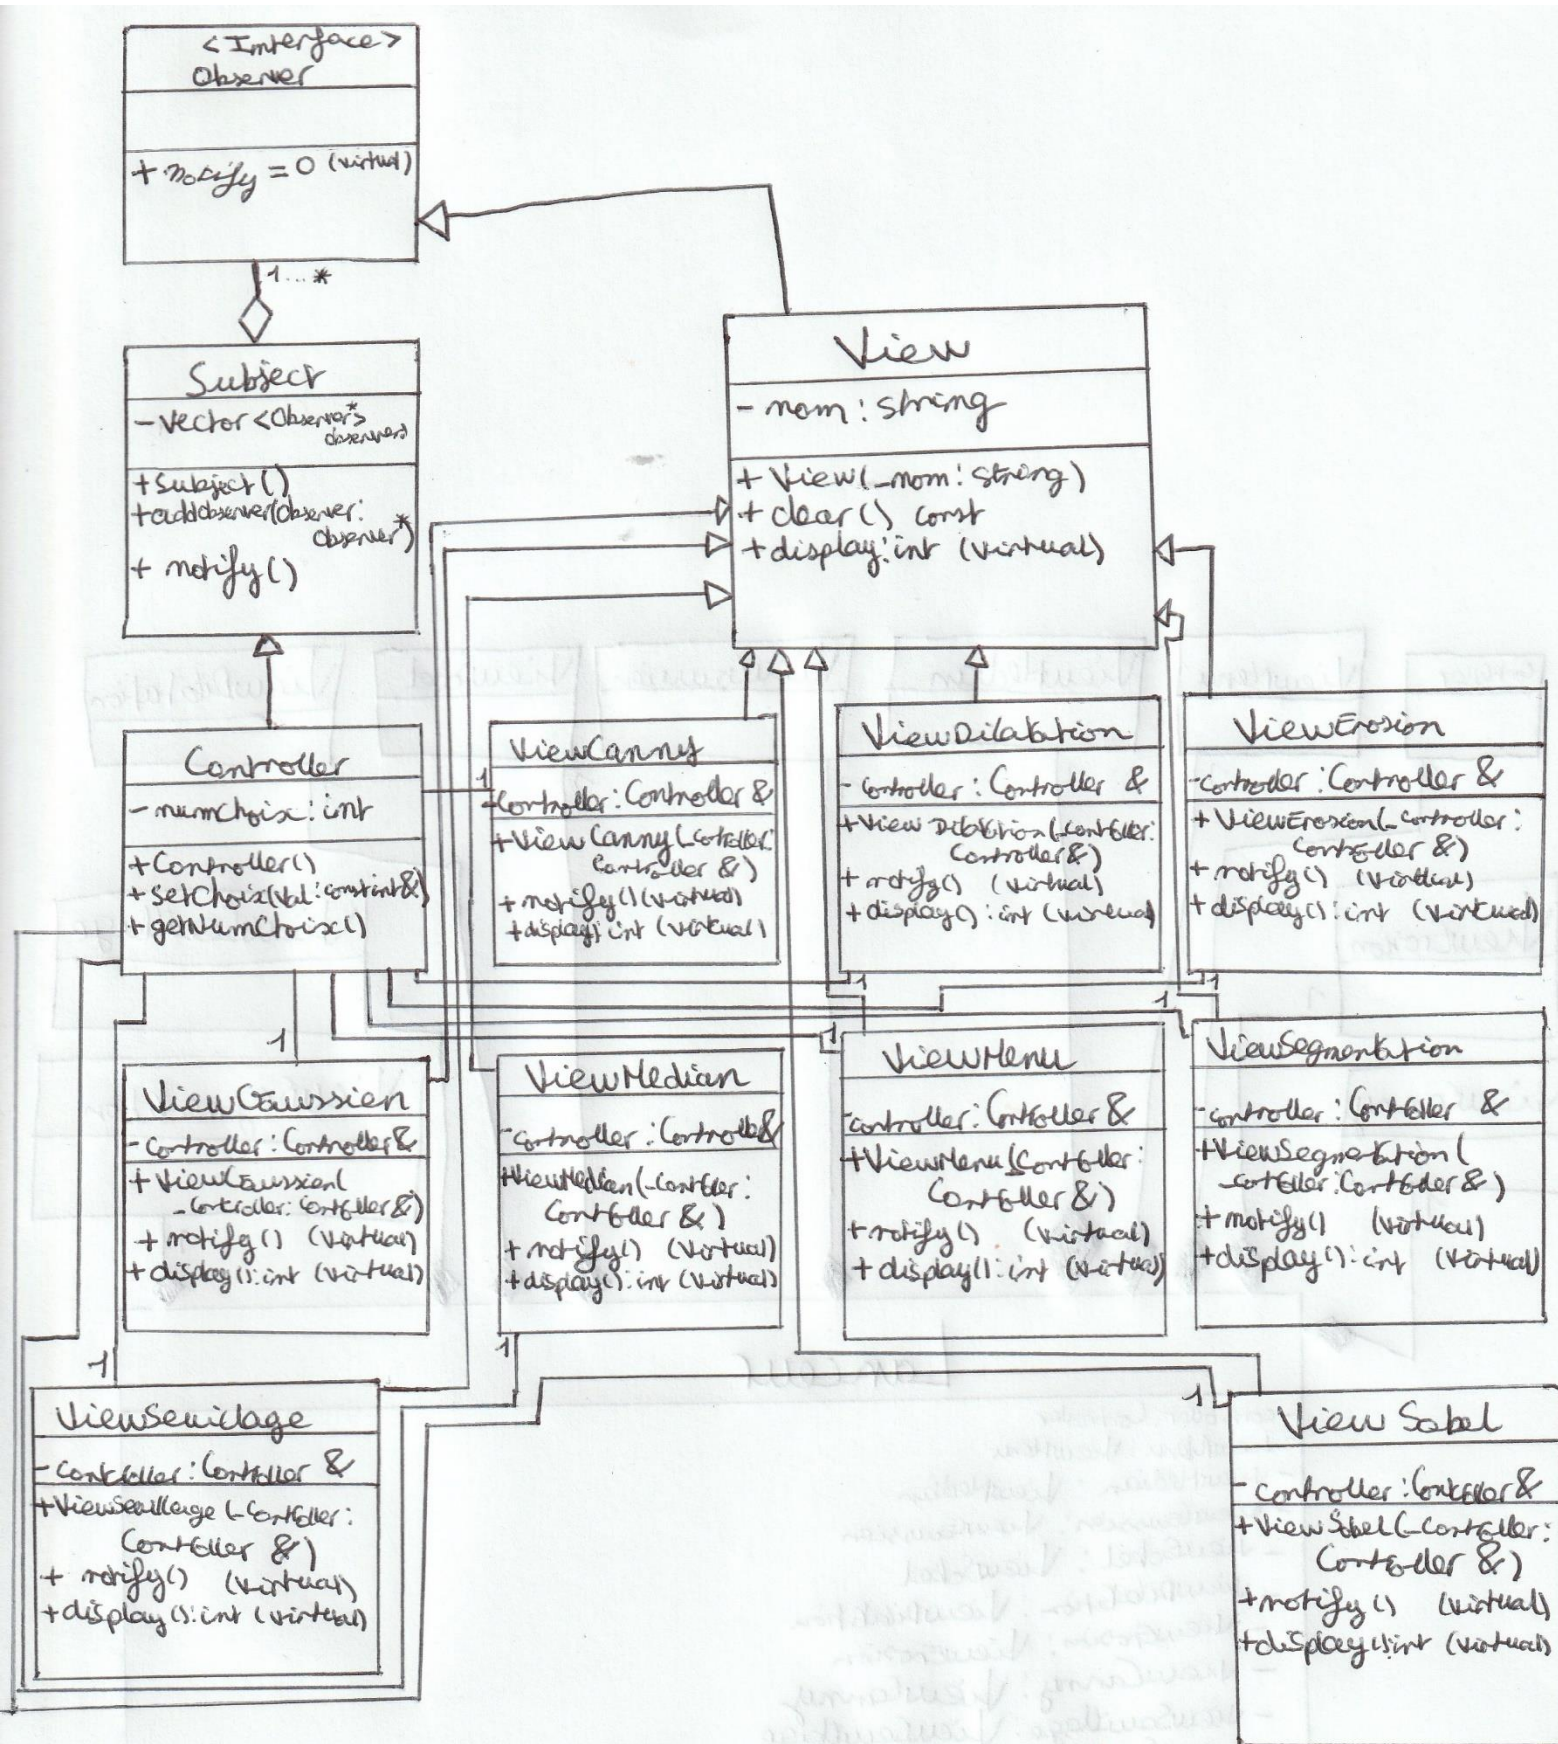 <Interface>
Observer
+ notify = 0 (virtual)
1...*
Subject
- Vector <Observer*>
observers
+ Subject()
+ addObserver(Observer:
Observer*)
+ notify()
View
- nom : string
+ View(_nom : string)
+ clear() const
+ display : int (virtual)
Controller
- numChoix : int
+ Controller()
+ setChoix(val : const int &)
+ getNumChoix()
1
ViewCanny
- Controller : Controller &
+ ViewCanny(_Cotroller:
Controller &)
+ notify() (virtual)
+ display() : int (virtual)
ViewDilatation
- controller : Controller &
+ View Dilatation(_controller:
Controller &)
+ notify() (virtual)
+ display() : int (virtual)
1
ViewErosion
- controller : Controller &
+ ViewErosion(_controller :
Controller &)
+ notify() (virtual)
+ display() : int (virtual)
1
1
ViewGaussien
- controller : Controller &
+ ViewGaussien(
_controller : Controller &)
+ notify() (virtual)
+ display() : int (virtual)
ViewMedian
- controller : Controller &
+ ViewMedian(_controller :
Controller &)
+ notify() (virtual)
+ display() : int (virtual)
1
1
ViewMenu
- controller : Controller &
+ ViewMenu(_Controller :
Controller &)
+ notify() (virtual)
+ display() : int (virtual)
1
ViewSegmentation
- controller : Controller &
+ ViewSegmentation(
_controller : Controller &)
+ notify() (virtual)
+ display() : int (virtual)
1
ViewSeuillage
- controller : Controller &
+ ViewSeuillage (_Controller :
Controller &)
+ notify() (virtual)
+ display() : int (virtual)
1
View Sobel
- controller : Controller &
+ View Sobel(_Controller :
Controller &)
+ notify() (virtual)
+ display() : int (virtual)